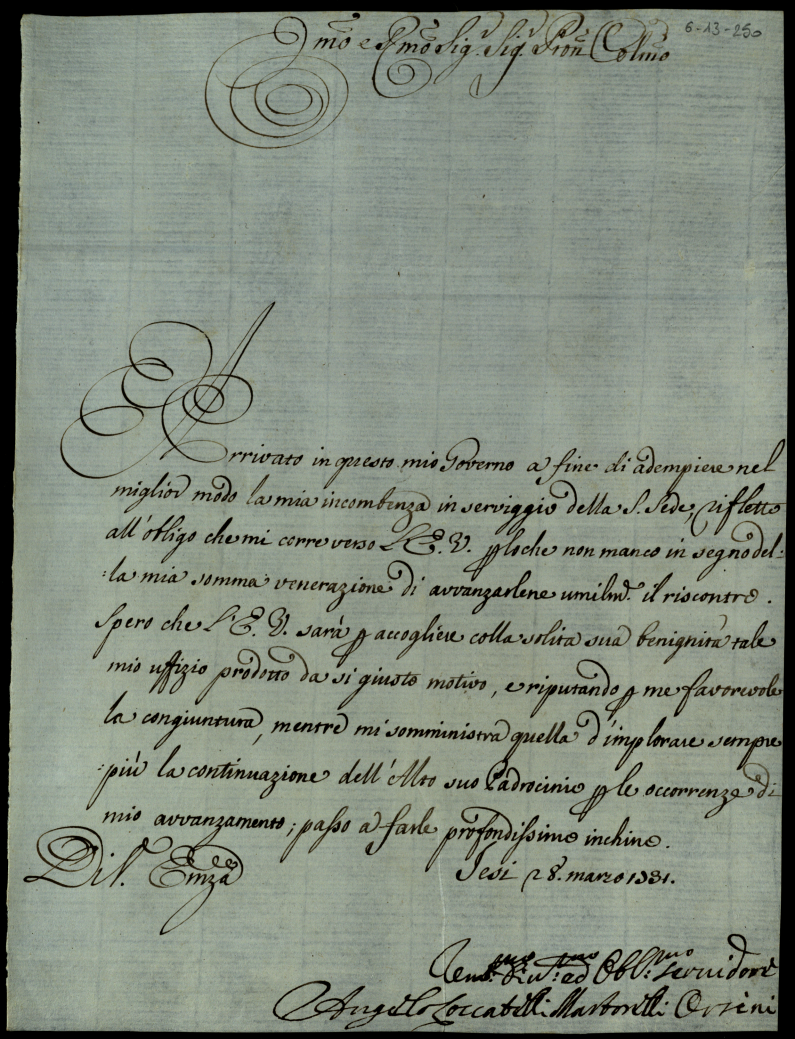 6-13-250
Emo e Rmo Sig.r Sig.r Pron Colmo
Arrivato in questo mio Governo a fine di adempiere nel
miglior modo la mia incombenza in serviggio della S. Sede, rifletto
all'obligo che mi corre verso l'E. V. p loche non manco in segno del:
:la mia somma venerazione di avvanzarlene umilmte. il riscontro.
Spero che l'E. V. sarà p accogliere colla solita sua benignità tale
mio uffizio prodotto da si giusto motivo, e riputando p me favorevole
la congiuntura, mentre mi somministra quella d'implorare sempre
:più la continuazione dell'Alto suo Padrocinio p le occorrenze di
mio avvanzamento; passo a farle profondissimo inchino.
Di V. Emza
Jesi 28. marzo 1731.
Umo. Divmo. ed Oblmo. servidore
Angelo Loccatelli Martorelli Orsini